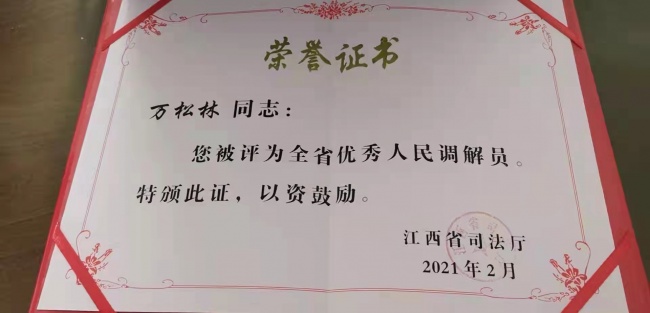 荣誉证书
万松林 同志：
您被评为全省优秀人民调解员。
特颁此证，以资鼓励。
江西省司法厅
2021年2月